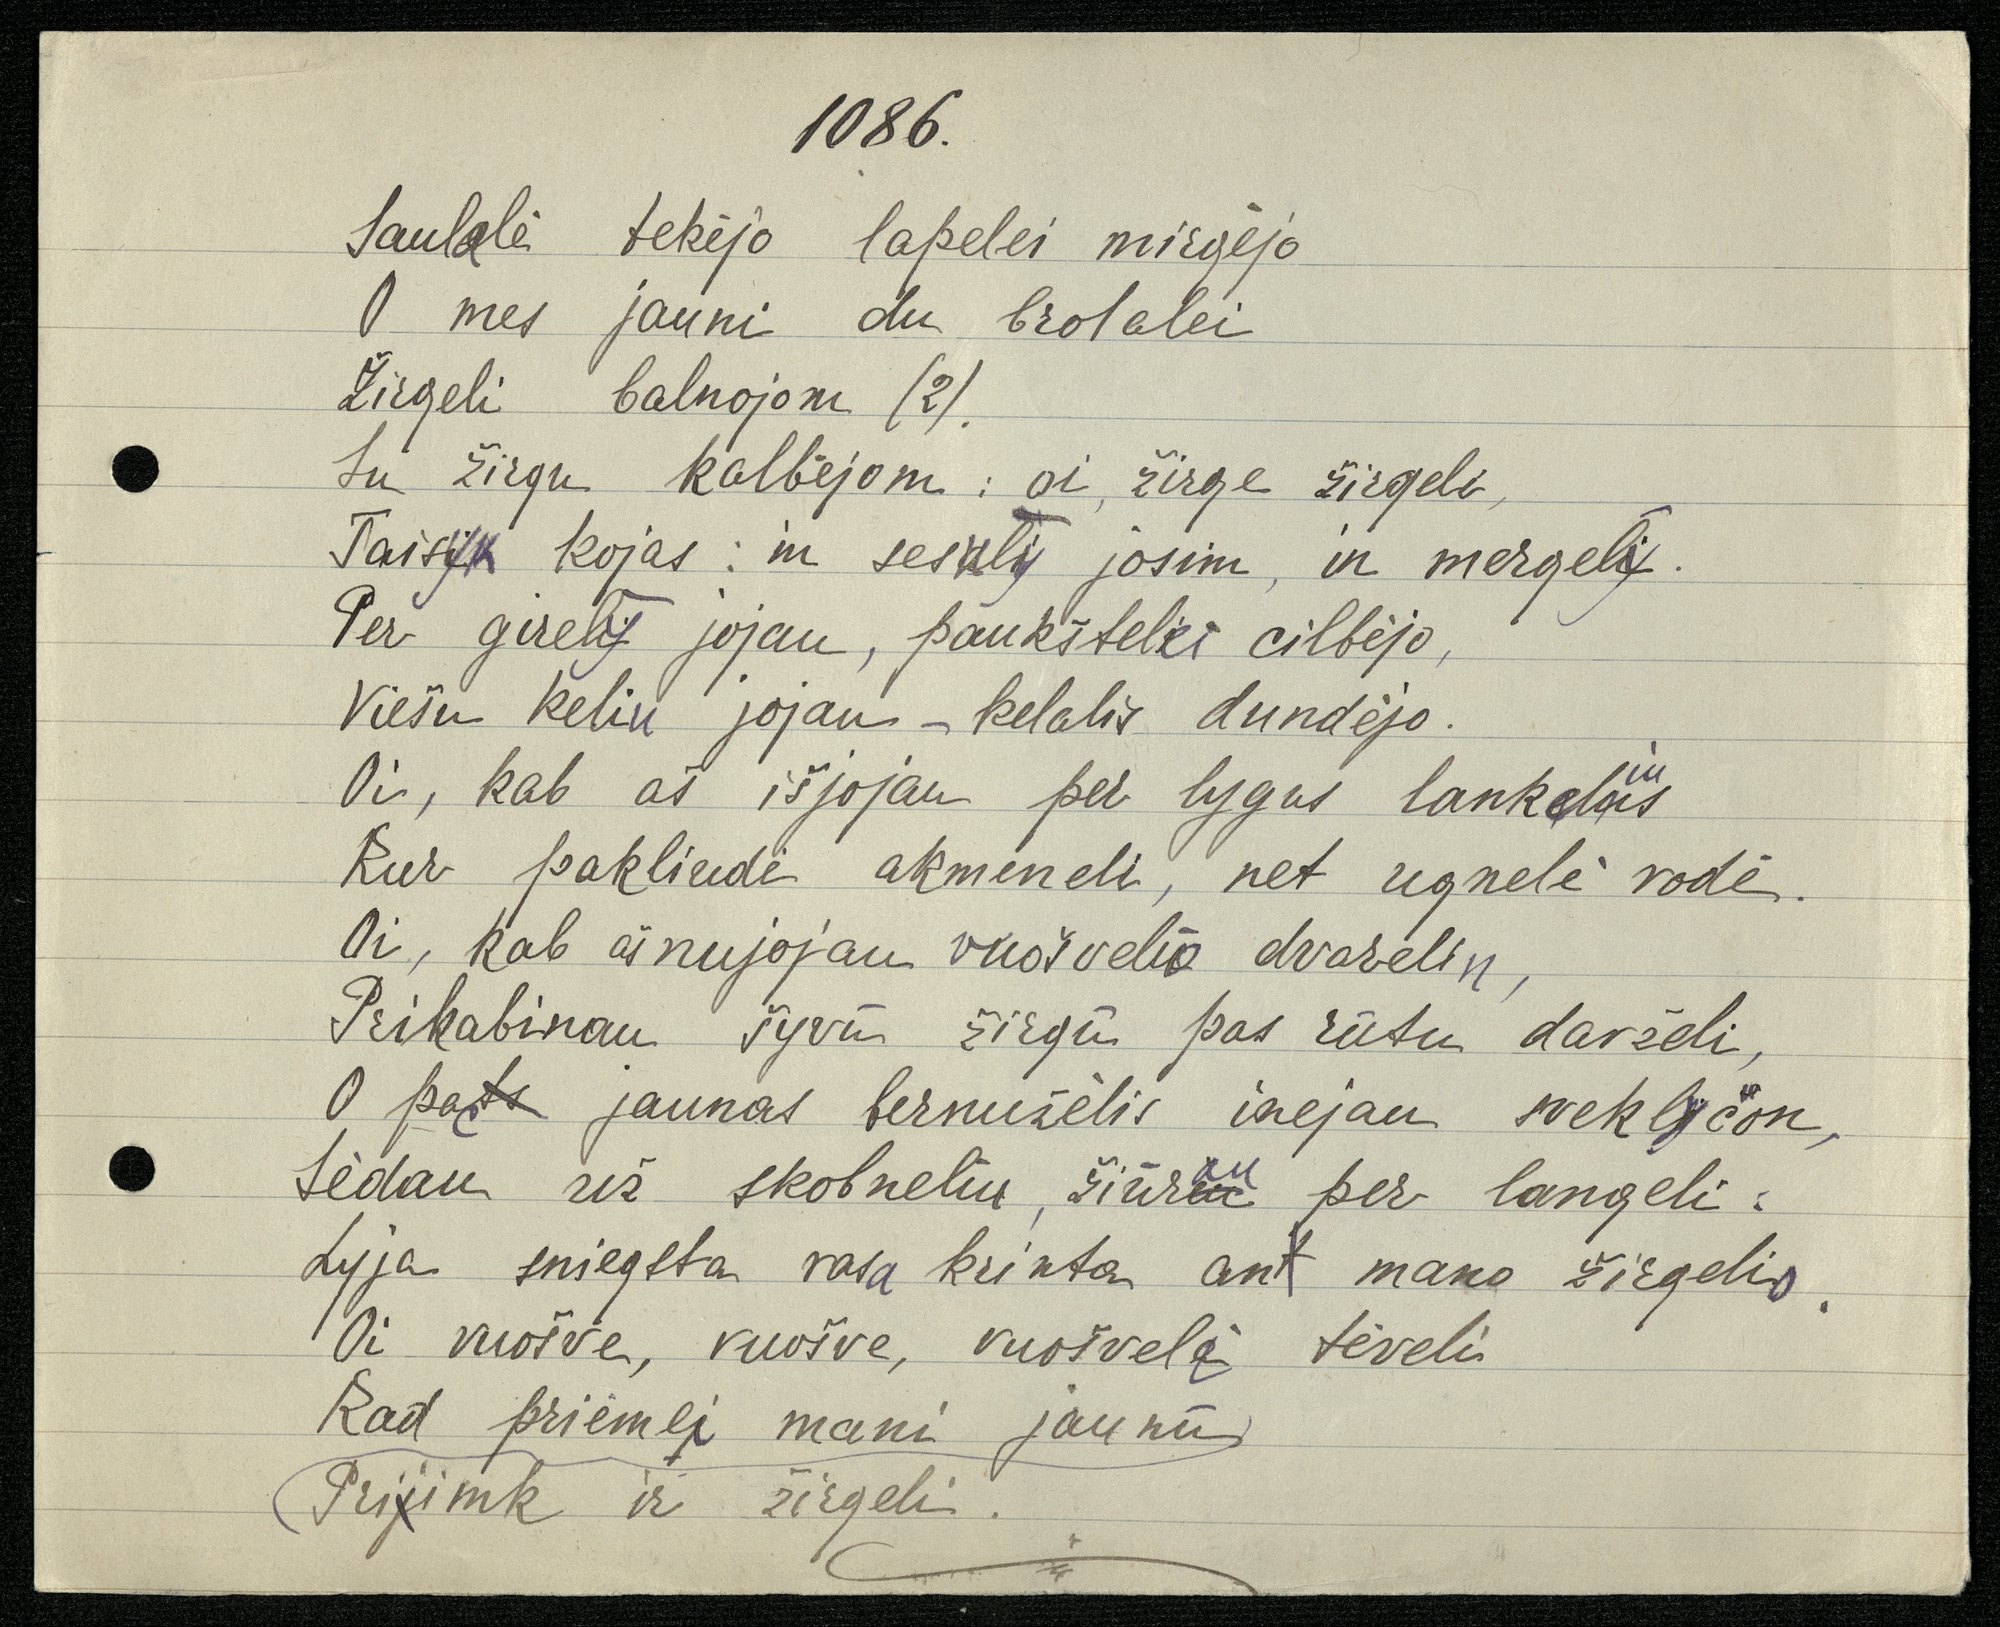 1086.
Saulalė tekėjo lapelei mirgėjo
O mes jauni du brolalei
Žirgeli balnojom (2).
Su žirgu kalbėjom: oi, žirge žirgeli,
Taisyk kojas: in sesulį josim, in mergelį.
Per girelį jojau, paukštelei cilbėjo,
Viešu keliu jojau – kelalis dundėjo.
Oi, kab aš išjojau per lygus lankelius
Kur pakliudė akmeneli, net ugnelė rodė.
Oi, kab aš nujojau vuošvelio dvarelin,
Prikabinau šyvū žirgū pas rūtu darželi,
O pac jaunas bernužėlis inejau sveklyčon,
Sėdau už skobneliu, žiūrau per langeli:
Lyja sniegsta rasa krinta ant mano žirgelio.
Oi vuošve, vuošve, vuošvelė tėveli
Kad priėmei mani jaunū
Prijimk ir žirgeli.